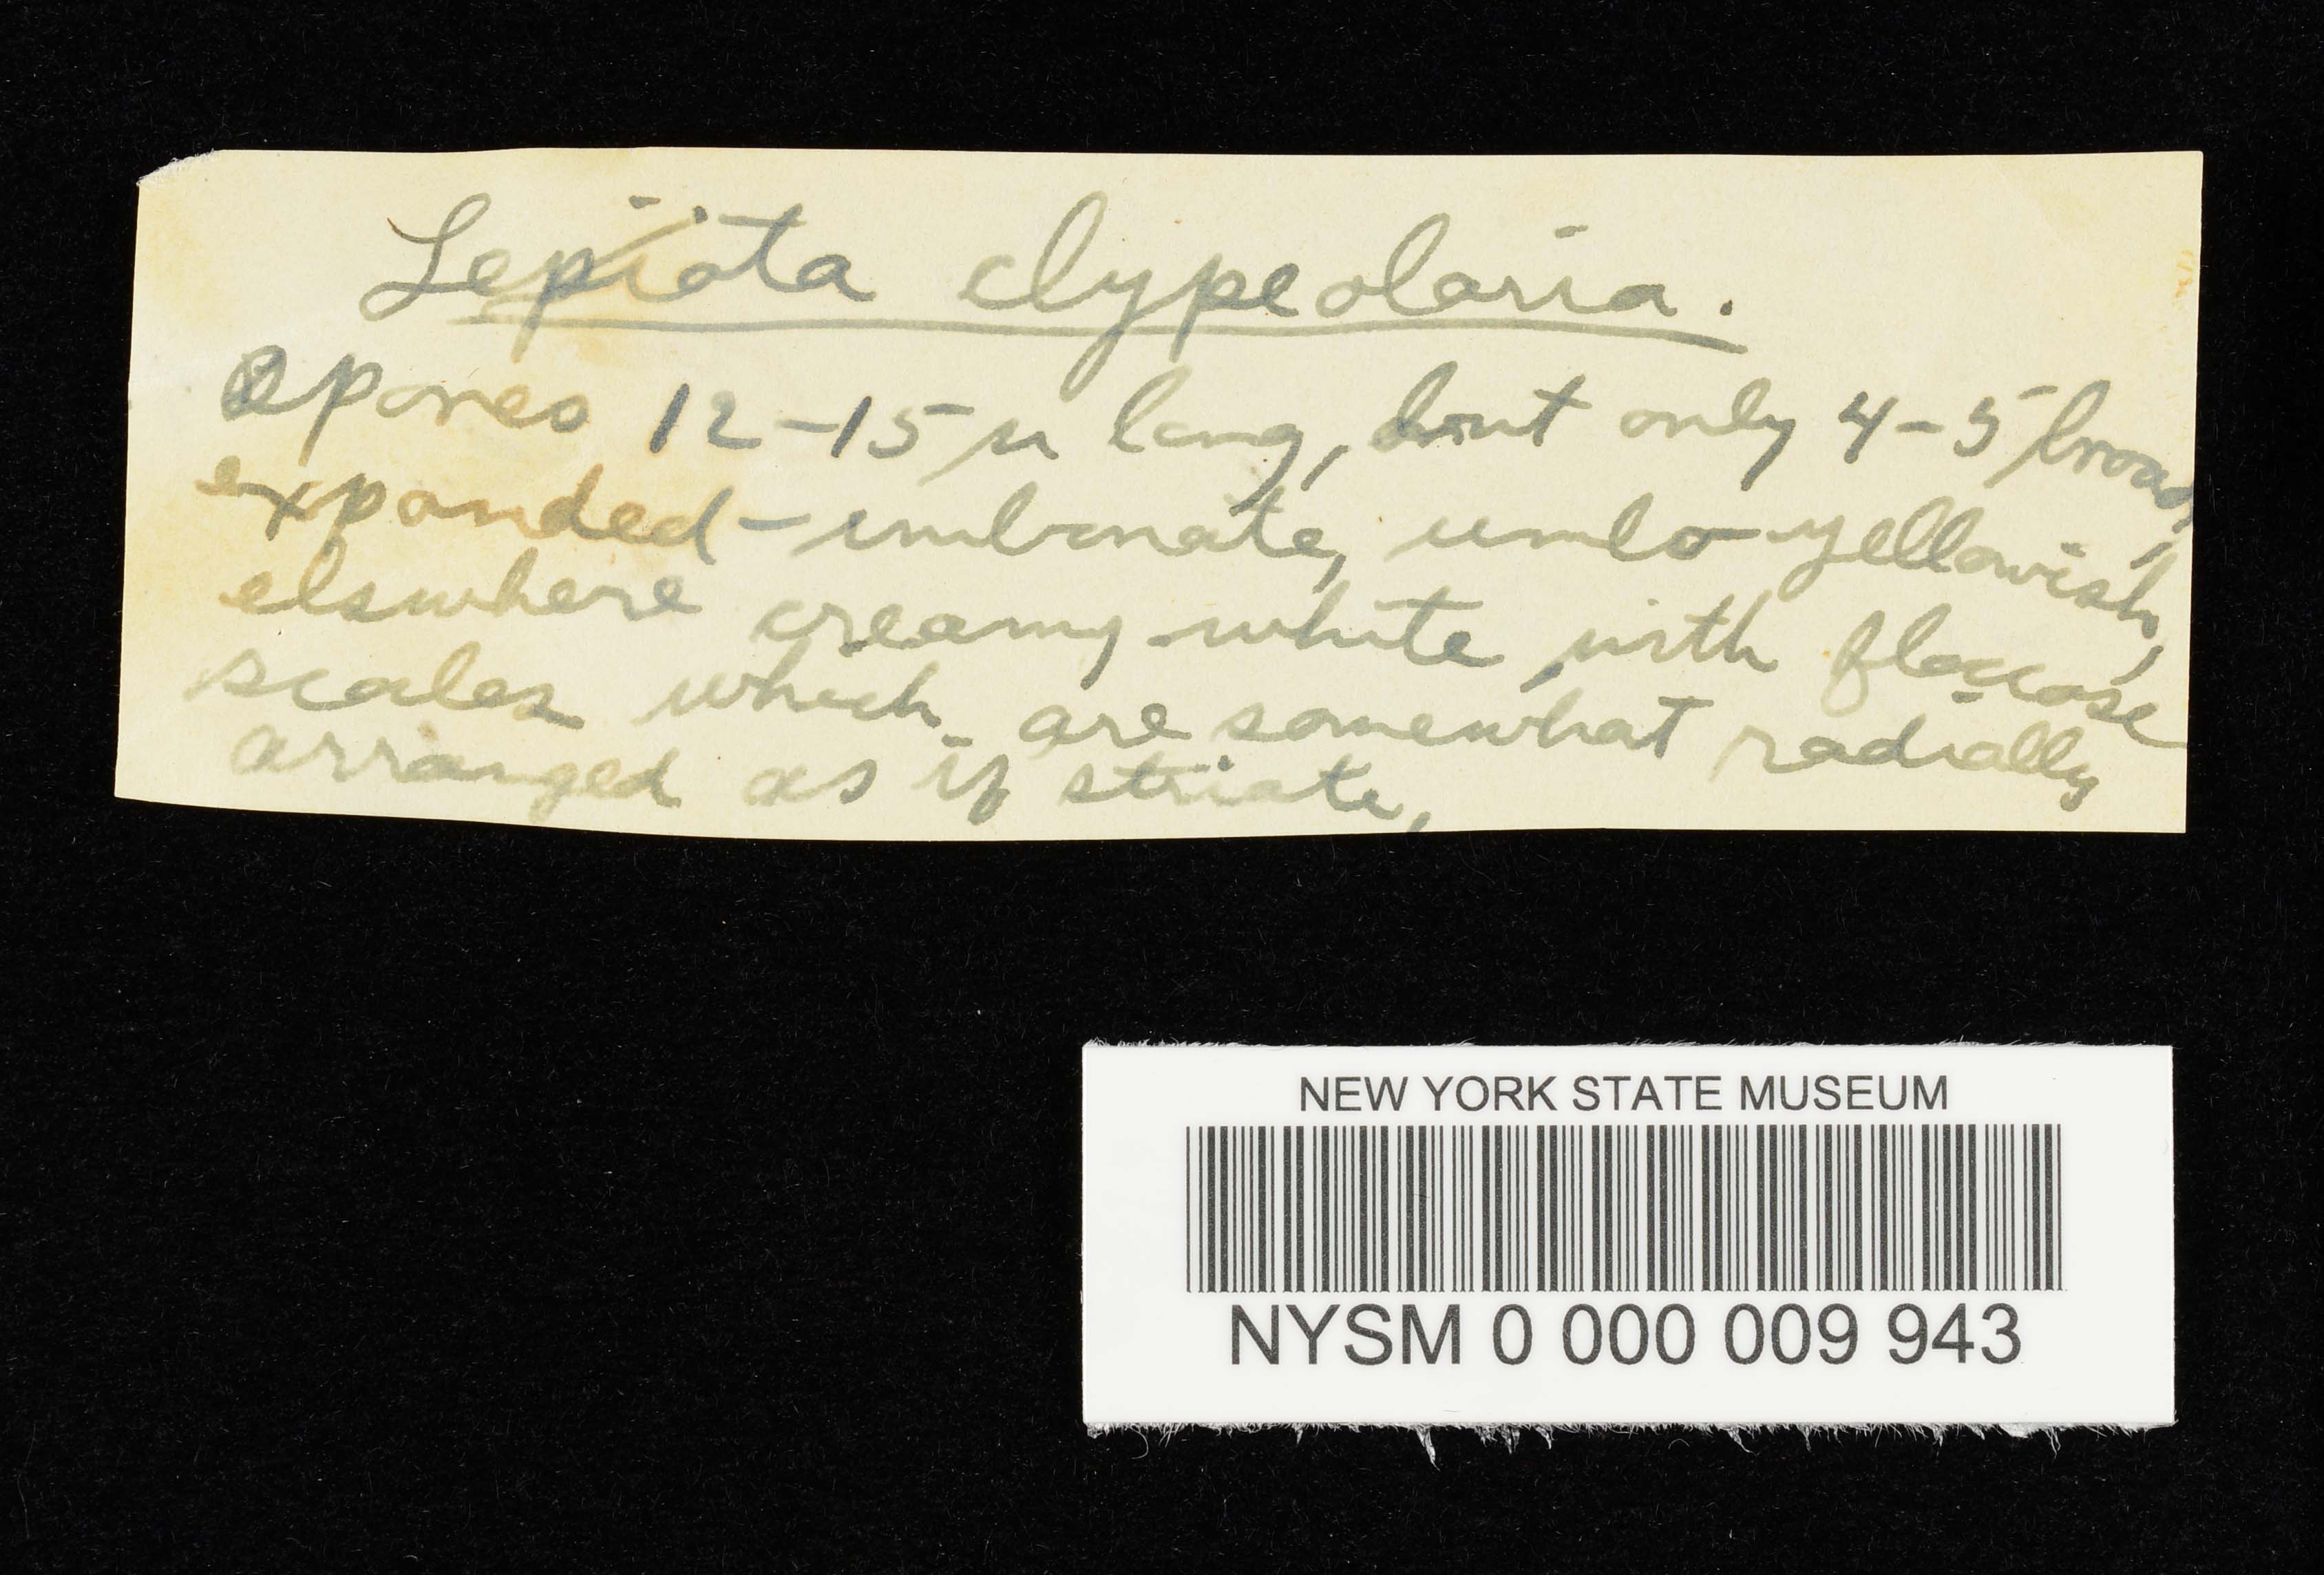 Lepiota clypeolaria.
Spores 12-15 µ long, but only 4-5 broad,
expanded-umbonate, umbo yellowish,
elswhere creamy-white, with floccose
scales which are somewhat radially
arranged as if striate,
NEW YORK STATE MUSEUM
NYSM 0 000 009 943